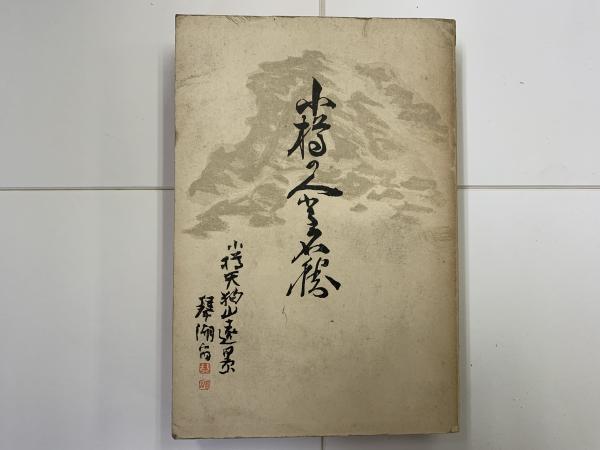 小樽の人と名勝
小樽天狗山遠景